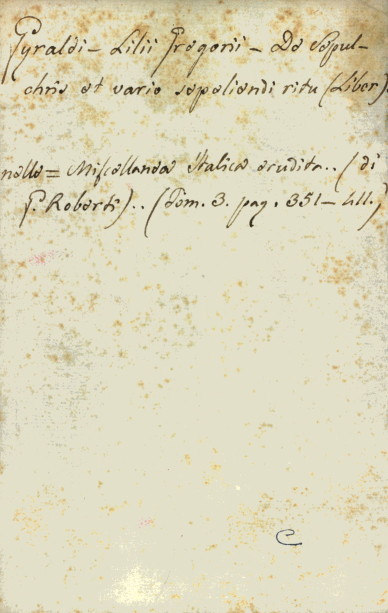 Gyraldi – Lilii Gregorii – De sepul-
chris et vario sepeliendi ritu (Liber).
nelle = Miscellanea Italica erudita.. (di
G. Roberti).. (Tom. 3. pag. 351 – 411.)
C